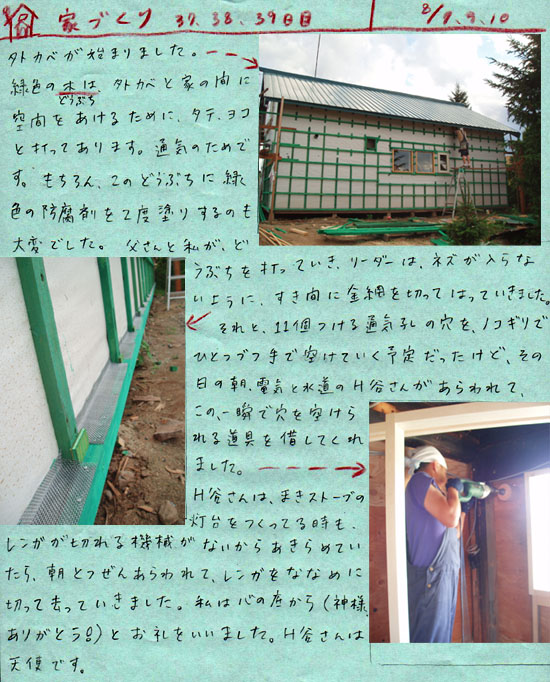 家づくり 37,38,39日目 8/8,9,10
外カベが始まりました。
緑色の木は、外カベと家の間に
どうぶち
空間をあけるために、タテ、ヨコ
と打ってあります。通気のためで
す。もちろん、このどうぶちに緑
色の防腐剤を2度塗りするのも
大変でした。 父さんと私が、ど
うぶちを打っていき、リーダーは、ネズが入らな
いように、すき間に金網を切ってはっていきました。
それと、11個つける通気孔の穴を、ノコギリで
ひとつづつ手で空けていく予定だったけど、その
日の朝、電気と水道のH谷さんがあらわれて、
この、一瞬で穴を空けら
れる道具を借してくれ
ました。
H谷さんは、まきストーブの
灯台をつくってる時も、
レンガが切れる機械がないからあきらめてい
たら、朝とつぜんあらわれて、レンガをななめに
切って去っていきました。私は心の底から(神様、
ありがとう!)とお礼をいいました。H谷さんは
天使です。